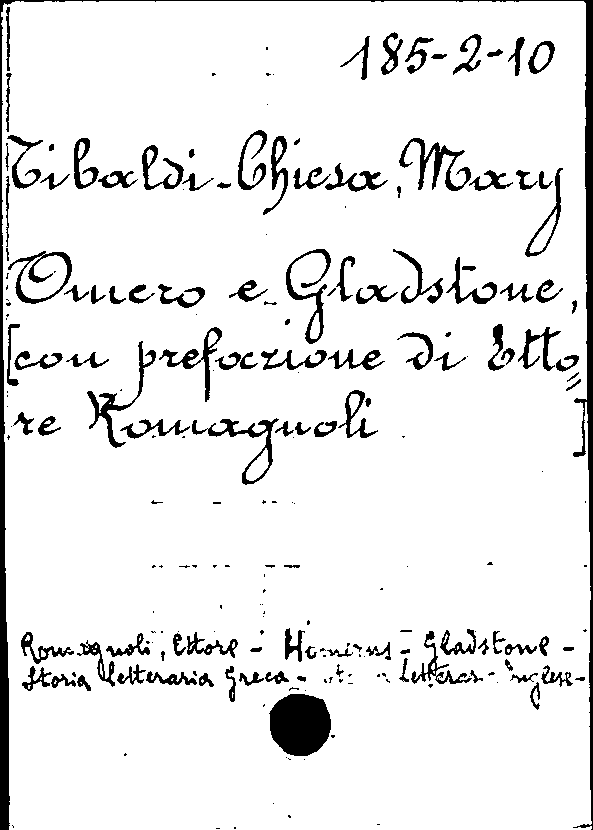 185-2-10
Tibaldi-Chiesa, Mary
Omero e Gladstone,
[con prefazione di Etto=
re Romagnoli ]
Romagnoli, Ettore - Homerus - Gladstone -
Storia letteraria greca - Letterar. Inglese -